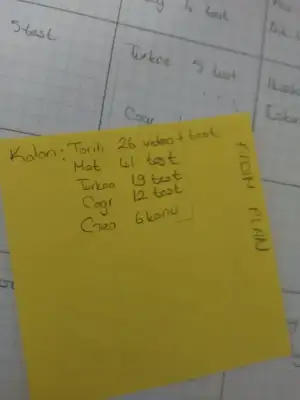 4 test
5 test
Türkçe 5 test
Coğr
Kalan: Tarih 26 video + test
Mat 41 test
Türkçe 19 test
Coğr 12 test
6 konu
PLAN